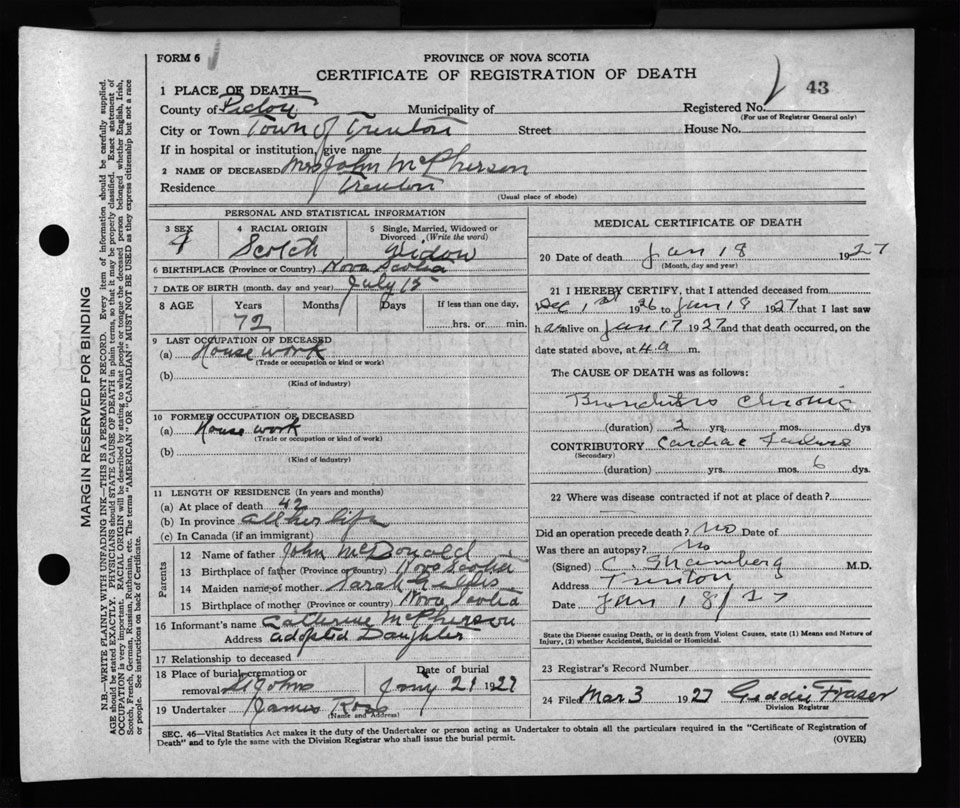 FORM 6
PROVINCE OF NOVA SCOTIA
CERTIFICATE OF REGISTRATION OF DEATH
43
1 PLACE OF DEATH—
County of Pictou Municipality of Registered No.
(For use of Registrar General only)
City or Town Town of Trenton Street House No.
If in hospital or institution, give name
2 NAME OF DECEASED Mrs John McPherson
Residence Trenton
(Usual place of abode)
PERSONAL AND STATISTICAL INFORMATION
3 SEX 4 RACIAL ORIGIN 5 Single, Married, Widowed or Divorced (Write the word)
Scotch
6 BIRTHPLACE (Province or Country) Nova Scotia
7 DATE OF BIRTH (month, day and year) July 15
8 AGE Years Months Days If less than one day,
72 hrs. or min.
9 LAST OCCUPATION OF DECEASED
(a) House work
(Trade or occupation or kind or work)
(b)
(Kind of industry)
10 FORMER OCCUPATION OF DECEASED
(a) House work
(Trade or occupation or kind of work)
(b)
(Kind of industry)
11 LENGTH OF RESIDENCE (In years and months)
(a) At place of death 42
(b) In province all her life
(c) In Canada (if an immigrant)
Parents
12 Name of father John McDonald
13 Birthplace of father (Province or country) Nova Scotia
14 Maiden name of mother Sarah
15 Birthplace of mother (Province or country) Nova Scotia
16 Informant's name Catherine McPherson
Address adopted Daughter
17 Relationship to deceased
18 Place of burial, cremation or removal St Johns Date of burial Jany 21 1927
19 Undertaker James Ross
(Name and Address)
MEDICAL CERTIFICATE OF DEATH
20 Date of death Jan 18 1927
(Month, day and year)
21 I HEREBY CERTIFY, that I attended deceased from
Dec 1st 1926 to Jan 18 1927 that I last saw
h alive on Jan 17 1927 and that death occurred, on the
date stated above, at 4 a m.
The CAUSE OF DEATH was as follows:
Bronchitis Chronic
(duration) 2 yrs. mos. dys
CONTRIBUTORY Cardiac Failure
(Secondary)
(duration) yrs. mos. 6 dys.
22 Where was disease contracted if not at place of death?
Did an operation precede death? No Date of
Was there an autopsy? No
(Signed) C. M.D.
Address Trenton
Date Jan 18/27
State the Disease causing Death, or in death from Violent Causes, state (1) Means and Nature of
Injury, (2) whether Accidental, Suicidal or Homicidal.
23 Registrar's Record Number
24 Filed Mar 3 1927 Geddie Fraser
Division Registrar
SEC. 46—Vital Statistics Act makes it the duty of the Undertaker or person acting as Undertaker to obtain all the particulars required in the "Certificate of Registration of
Death" and to fyle the same with the Division Registrar who shall issue the burial permit.
(OVER)
MARGIN RESERVED FOR BINDING
N.B.—WRITE PLAINLY, WITH UNFADING INK—THIS IS A PERMANENT RECORD. Every item of information should be carefully supplied.
AGE should be stated EXACTLY. PHYSICIANS should STATE CAUSE OF DEATH in plain terms, so that it may be properly classified. Exact statement of
OCCUPATION is very important. RACIAL ORIGIN will be described by stating to what people or tongue the deceased person belonged whether English, Irish,
Scotch, French, German, Russian, Ruthenian, etc. The terms "AMERICAN" or "CANADIAN" MUST NOT BE USED as they express citizenship but not a race
or people. See instructions on back of Certificate.